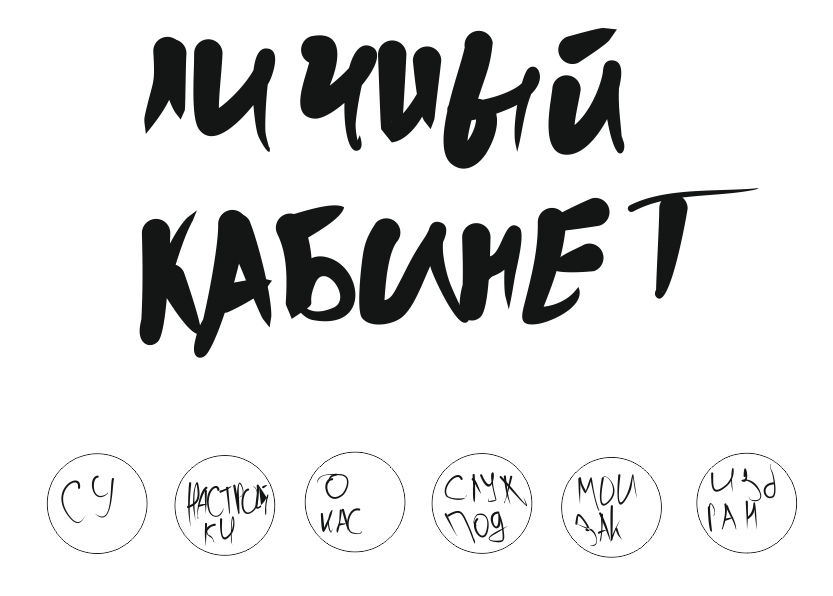 ЛИЧНЫЙ
КАБИНЕТ
СУ
НАСТРОЙ
КИ
О
НАС
СЛУЖ
ПОД
МОИ
ЗАК
ИЗБ
РАН